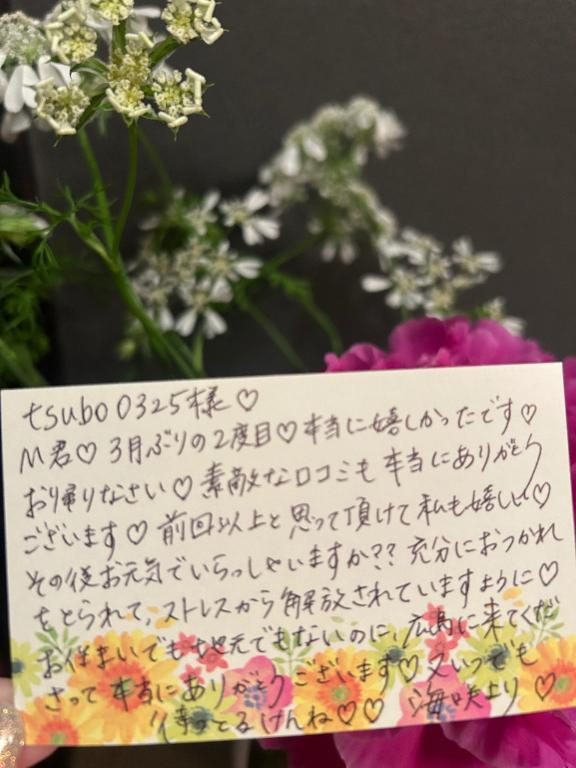 tsubo0325様♡
M君♡3月ぶりの2度目♡本当に嬉しかったです♡
おり帰りなさい♡素敵な口コミも本当にありがとう
ございます♡前回以上と思って頂けて私も嬉しい♡
その後お元気でいらっしゃいますか??充分におつかれ
をとられて、ストレスから解放されていますように♡
お住まいでも地元でもないのに、広島に来てくだ
さって本当にありがとうございます♡又いつでも
待っとるけんね♡♡ 海咲より♡